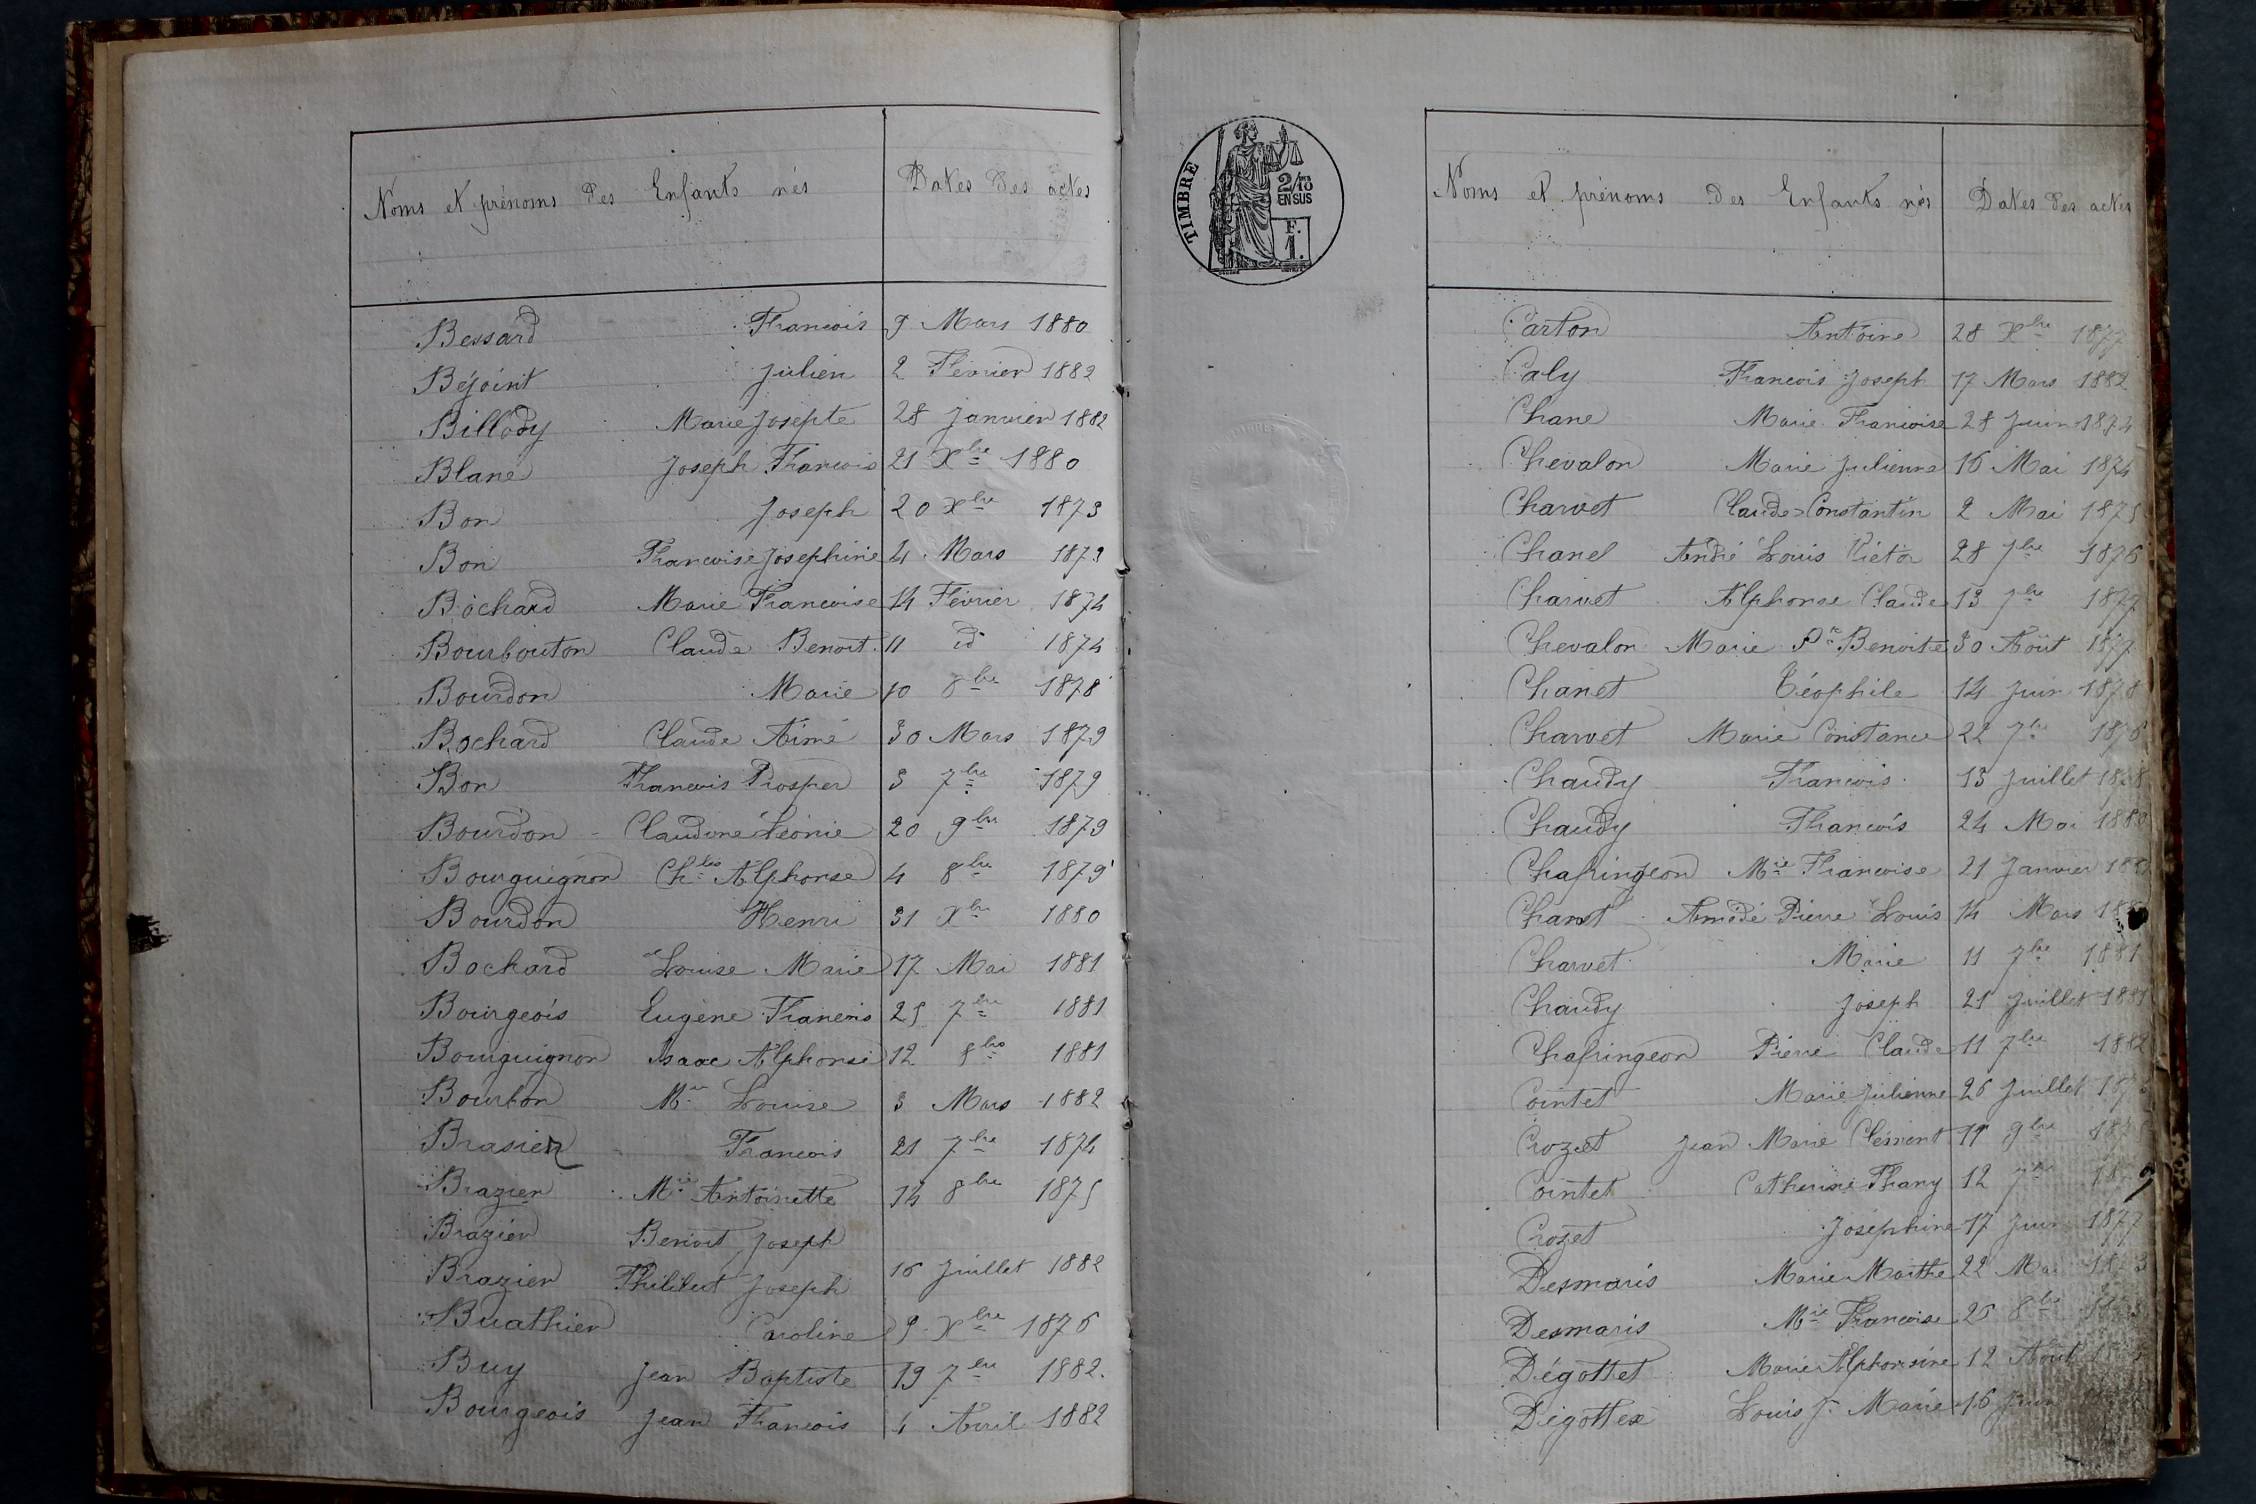 Noms et prénoms des Enfants nés Dates des actes
Bessard François 9 Mars 1880
Béjoint Julien 2 Février 1882
Billody Marie Josepte 28 Janvier 1882
Blanc Joseph François 21 Xbre 1880
Bon Joseph 20 Xbre 1873
Bon Françoise Josephine 4 Mars 1873
Bochard Marie Françoise 14 Février 1874
Bourbouton Claude Benoit 11 id 1874
Bourdon Marie 10 8bre 1878
Bochard Claude Aimé 30 Mars 1879
Bon François Prosper 3 7bre 1879
Bourdon - Claudine Léonie 20 9bre 1879
Bourguignon Chles Alphonse 4 8bre 1879
Bourdon Henri 31 Xbre 1880
Bochard Louise Marie 17 Mai 1881
Bourgeois Eugène François 25 7bre 1881
Bourguignon Isaac Alphonse 12 8bre 1881
Bourbon Mie Louise 3 Mars 1882
Brasier François 21 7bre 1874
Brazier Mie Antoinette 14 8bre 1875
Brazier Benoit Joseph
Brazier Philibert Joseph 16 Juillet 1882
Buathier Caroline 9 Xbre 1876
Buy Jean Baptiste 19 7bre 1882.
Bourgeois Jean François 4 Avril 1882
TIMBRE
2/10
EN SUS
F.
1.
Noms et prénoms des Enfants nés Dates des actes
Carton Antoine 28 Xbre 1877
Caly François Joseph 17 Mars 1882
Chane Marie Françoise 28 Juin 1874
Chevalon Marie Julienne 16 Mai 1874
Charvet Claude Constantin 2 Mai 1875
Chanel André Louis Victor 28 7bre 1876
Charvet Alphonse Claude 13 7bre 1877
Chevalon Marie Pre Benoite 30 Août 1877
Chanet Téophile 14 Juin 1878
Charvet Marie Constance 22 7bre 1876
Chaudy François 13 Juillet 1878
Chaudy François 24 Mai 1880
Chafringeon Mie Françoise 21 Janvier
Chanet Amédé Pierre Louis 14 Mars
Charvet Marie 11 7bre 1881
Chaudy Joseph 21 Juillet 1881
Chafringeon Pierre Claude 11 7bre 1882
Cointet Marie Julienne 26 Juillet
Crozet Jean Marie Clément 11 9bre
Cointet Catherine Fhany 12 7bre
Crozet Joséphine 17 Juin 1877
Desmaris Marie Marthe 22 Mai 1873
Desmaris Mie Françoise 26 8bre
Dégottet Marie Alphonsine 12 Août
Dégottex Louis J. Marie 16 Juin